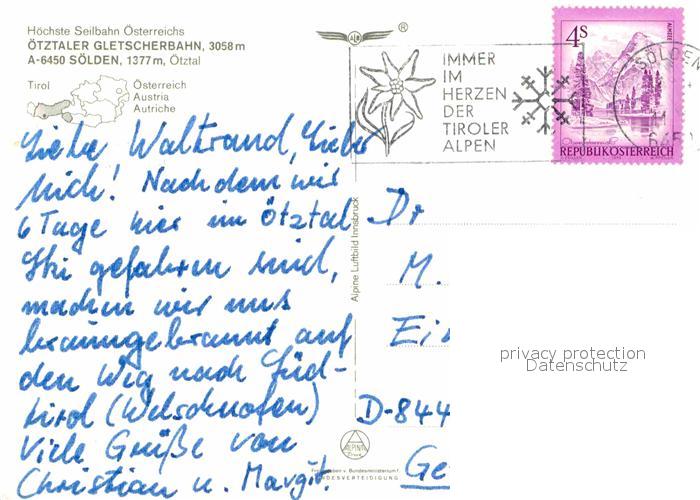 Höchste Seilbahn Österreichs
ÖTZTALER GLETSCHERBAHN, 3058 m
A-6450 SÖLDEN, 1377 m, Ötztal
Tirol
Österreich
Austria
Autriche
®
IMMER
IM
HERZEN
DER
TIROLER
ALPEN
4S
REPUBLIK ÖSTERREICH
SÖLDEN
Liebe Waltraud, Lieber
Mich! Nachdem wir
6 Tage hier im Ötztal
Ski gefahren sind,
machen wir uns
braungebrannt auf
den Weg nach Süd-
tirol (Welschnofen)
Viele Grüße von
Christian u. Margit.
Alpine Luftbild Innsbruck
Dr
M.
Ei
D-844
Ge
privacy protection
Datenschutz
ALPINE
v. Bundesministerium f.